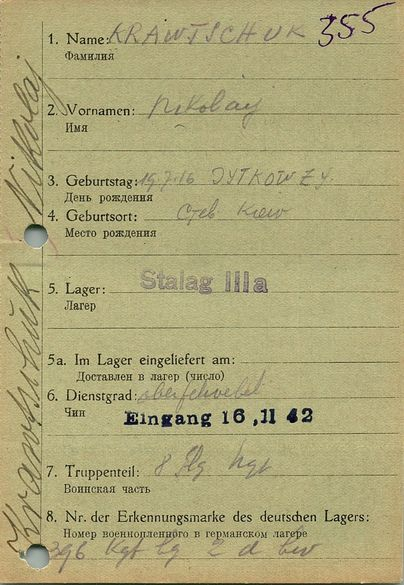 355
1. Name: KRAWTSCHUK
Фамилия
2. Vornamen: Nikolay
Имя
3. Geburtstag: 19.7.16
День рождения
4. Geburtsort: Geb Kiew
Место рождения
5. Lager: Stalag IIIa
Лагерь
5a. Im Lager eingeliefert am:
Доставлен в лагерь (число)
6. Dienstgrad:
Чин
Eingang 16.11 42
7. Truppenteil: 8
Воинская часть
8. Nr. der Erkennungsmarke des deutschen Lagers:
Номер военнопленного в германском лагере
396
Krawtschuk Nikolaj